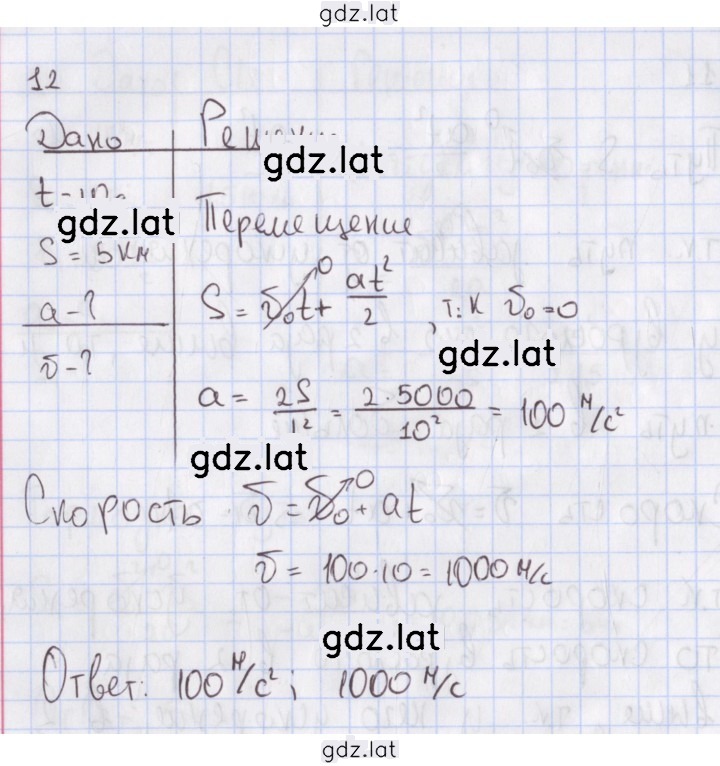 gdz.lat
12
Дано
gdz.lat
gdz.lat
S = 5 км
a - ?
υ - ?
Перемещение
S = υ₀t + at²/2, т.к υ₀ = 0
0
gdz.lat
a = 2S/t² = 2·5000/10² = 100 м/с²
gdz.lat
Скорость υ = υ₀ + at
0
υ = 100·10 = 1000 м/с
gdz.lat
Ответ: 100 м/с²; 1000 м/с
gdz.lat